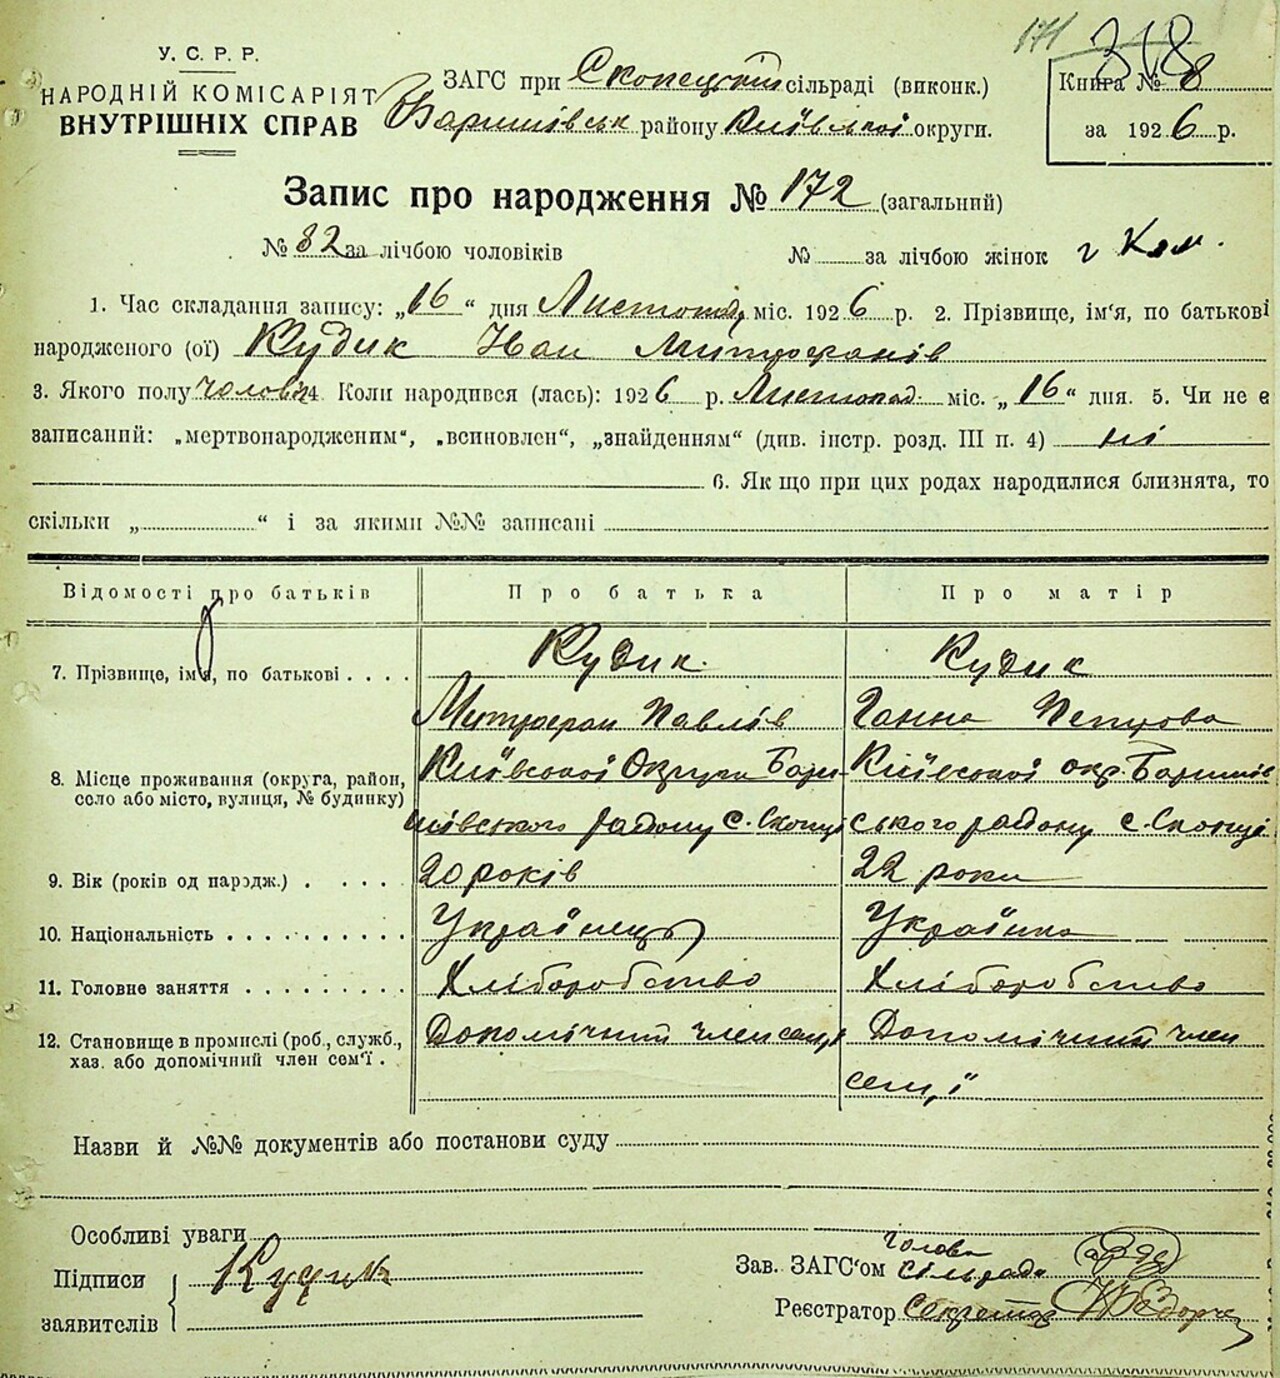 171 318
У. С. Р. Р.
НАРОДНІЙ КОМІСАРІЯТ
ВНУТРІШНІХ СПРАВ
ЗАГС при Скопецькій сільраді (виконк.)
Баришівськ району Київської округи.
Книга № 8
за 1926 р.
Запис про народження № 172 (загальний)
№ 82 за лічбою чоловіків № за лічбою жінок
1. Час складання запису: „16“ дня Листопад міс. 1926 р. 2. Прізвище, ім'я, по батькові
народженого (ої) Кудик Іван Митрофанів
3. Якого полу чоловіч 4. Коли народився (лась): 1926 р. Листопад. міс. „16“ дня. 5. Чи не є
записаний: „мертвонародженим“, „всиновлен“, „знайденням“ (див. інстр. розд. III п. 4) ні
6. Як що при цих родах народилися близнята, то
скільки „ “ і за якими №№ записані
Відомості про батьків Про батька Про матір
7. Прізвище, ім'я, по батькові . . . . Кудик. Кудик
Митрофан Павлів Ганна Петрова
8. Місце проживання (округа, район, Київської Округи Бари- Київської окр. Баришів
село або місто, вулиця, № будинку) шівського району с. Скопці ського району с. Скопці
9. Вік (років од народж.) . . . . . 20 років 22 роки
10. Національність . . . . . . . . . . Українець Українка
11. Головне заняття . . . . . . . . . Хліборобство Хліборобство
12. Становище в промислі (роб., служб., Допомічний член семʼї Допомічний член
хаз. або допомічний член сем'ї . сем,ї
Назви й №№ документів або постанови суду
Особливі уваги
Підписи
заявителів
Кудик
Зав. ЗАГС'ом Голова сільради
Реєстратор Секретар